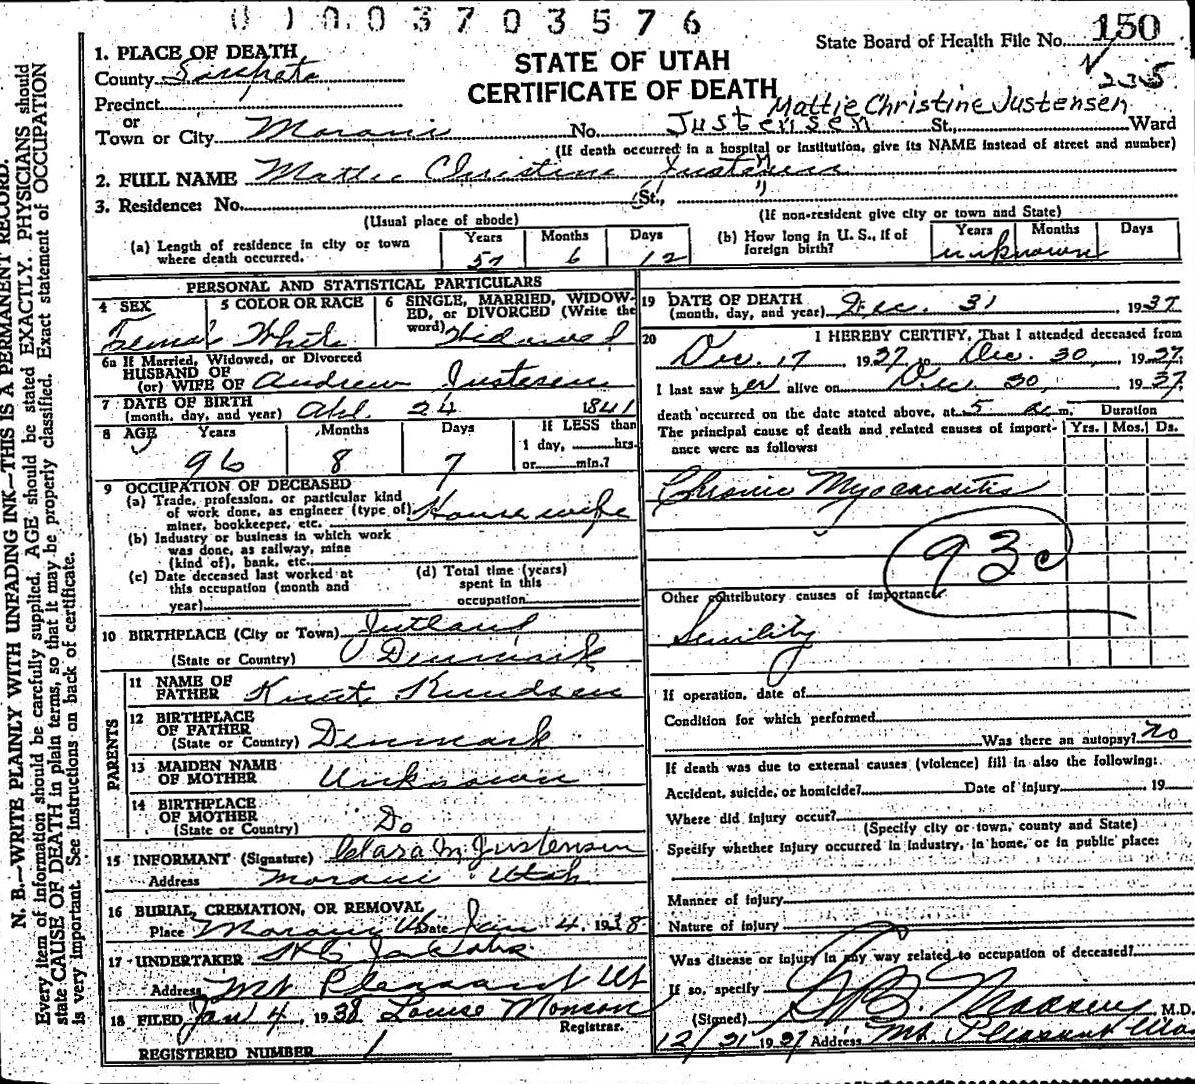 0 1 0 0 3 7 0 3 5 7 6
State Board of Health File No. 150
235
STATE OF UTAH
CERTIFICATE OF DEATH
1. PLACE OF DEATH
County Sanpete
Precinct
or
Town or City Moroni No. Justensen St., Ward
Mattie Christine Justensen
(If death occurred in a hospital or institution, give its NAME instead of street and number)
2. FULL NAME Mattie Christine Justensen
3. Residence: No. (St.,
(Usual place of abode) (If non-resident give city or town and State)
(a) Length of residence in city or town where death occurred. Years 57 Months 6 Days 12
(b) How long in U. S., if of foreign birth? Years Months Days unknown
PERSONAL AND STATISTICAL PARTICULARS
4 SEX Female
5 COLOR OR RACE White
6 SINGLE, MARRIED, WIDOWED, or DIVORCED (Write the word) Widowed
6a If Married, Widowed, or Divorced
HUSBAND OF
(or) WIFE OF Andrew Justesen
7 DATE OF BIRTH
(month, day, and year) 24 1841
8 AGE Years 96 Months 8 Days 7 If LESS than 1 day, hrs. or min.?
9 OCCUPATION OF DECEASED
(a) Trade, profession, or particular kind
of work done, as engineer (type of) Housewife
miner, bookkeeper, etc.
(b) Industry or business in which work
was done, as railway, mine
(kind of), bank, etc.
(c) Date deceased last worked at
this occupation (month and
year)
(d) Total time (years)
spent in this
occupation
10 BIRTHPLACE (City or Town) Jutland
(State or Country) Denmark
PARENTS
11 NAME OF
FATHER Knut Knudsen
12 BIRTHPLACE
OF FATHER
(State or Country) Denmark
13 MAIDEN NAME
OF MOTHER Unknown
14 BIRTHPLACE
OF MOTHER
(State or Country) Do
15 INFORMANT (Signature) Clara M Justensen
Address Moroni Utah
16 BURIAL, CREMATION, OR REMOVAL
Place Moroni Ut Date Jan 4. 1938
17 UNDERTAKER
Address Mt Pleasant Ut
18 FILED Jan 4, 1938 Louise Monson
Registrar.
REGISTERED NUMBER 1
19 DATE OF DEATH
(month, day, and year) Dec. 31 1937
20 I HEREBY CERTIFY, That I attended deceased from
Dec. 17 1937 to Dec. 30, 1937.
I last saw her alive on Dec. 30, 1937
death occurred on the date stated above, at 5 a. m. Duration
The principal cause of death and related causes of importance were as follows: Yrs. Mos. Ds.
Chronic Myocarditis
93c
Other contributory causes of importance
Senility
If operation, date of
Condition for which performed
Was there an autopsy? No
If death was due to external causes (violence) fill in also the following:
Accident, suicide, or homicide? Date of injury 19
Where did injury occur?
(Specify city or town, county and State)
Specify whether injury occurred in industry, in home, or in public place:
Manner of injury
Nature of injury
Was disease or injury in any way related to occupation of deceased?
If so, specify
(Signed) M.D.
12/31 1937 Address Mt. Pleasant
N. B.—WRITE PLAINLY WITH UNFADING INK—THIS IS A PERMANENT RECORD.
Every item of information should be carefully supplied. AGE should be stated EXACTLY. PHYSICIANS should
state CAUSE OF DEATH in plain terms, so that it may be properly classified. Exact statement of OCCUPATION
is very important. See instructions on back of certificate.